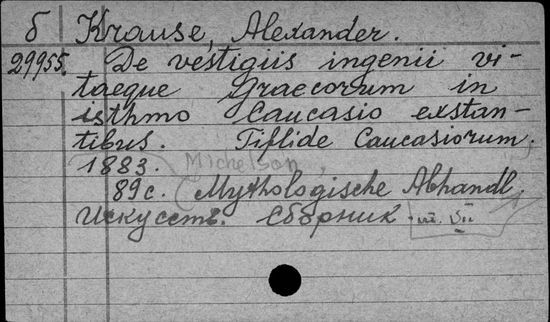 б Krause, Alexander.
29955. De vestigiis ingenii vi-
taeque Graecorum in
isthmo Caucasio exstan-
tibus. Tiflide Caucasiorum.
1883. Michelson,
89 с. Mythologische Abhandl.
Искусств. Сборник.